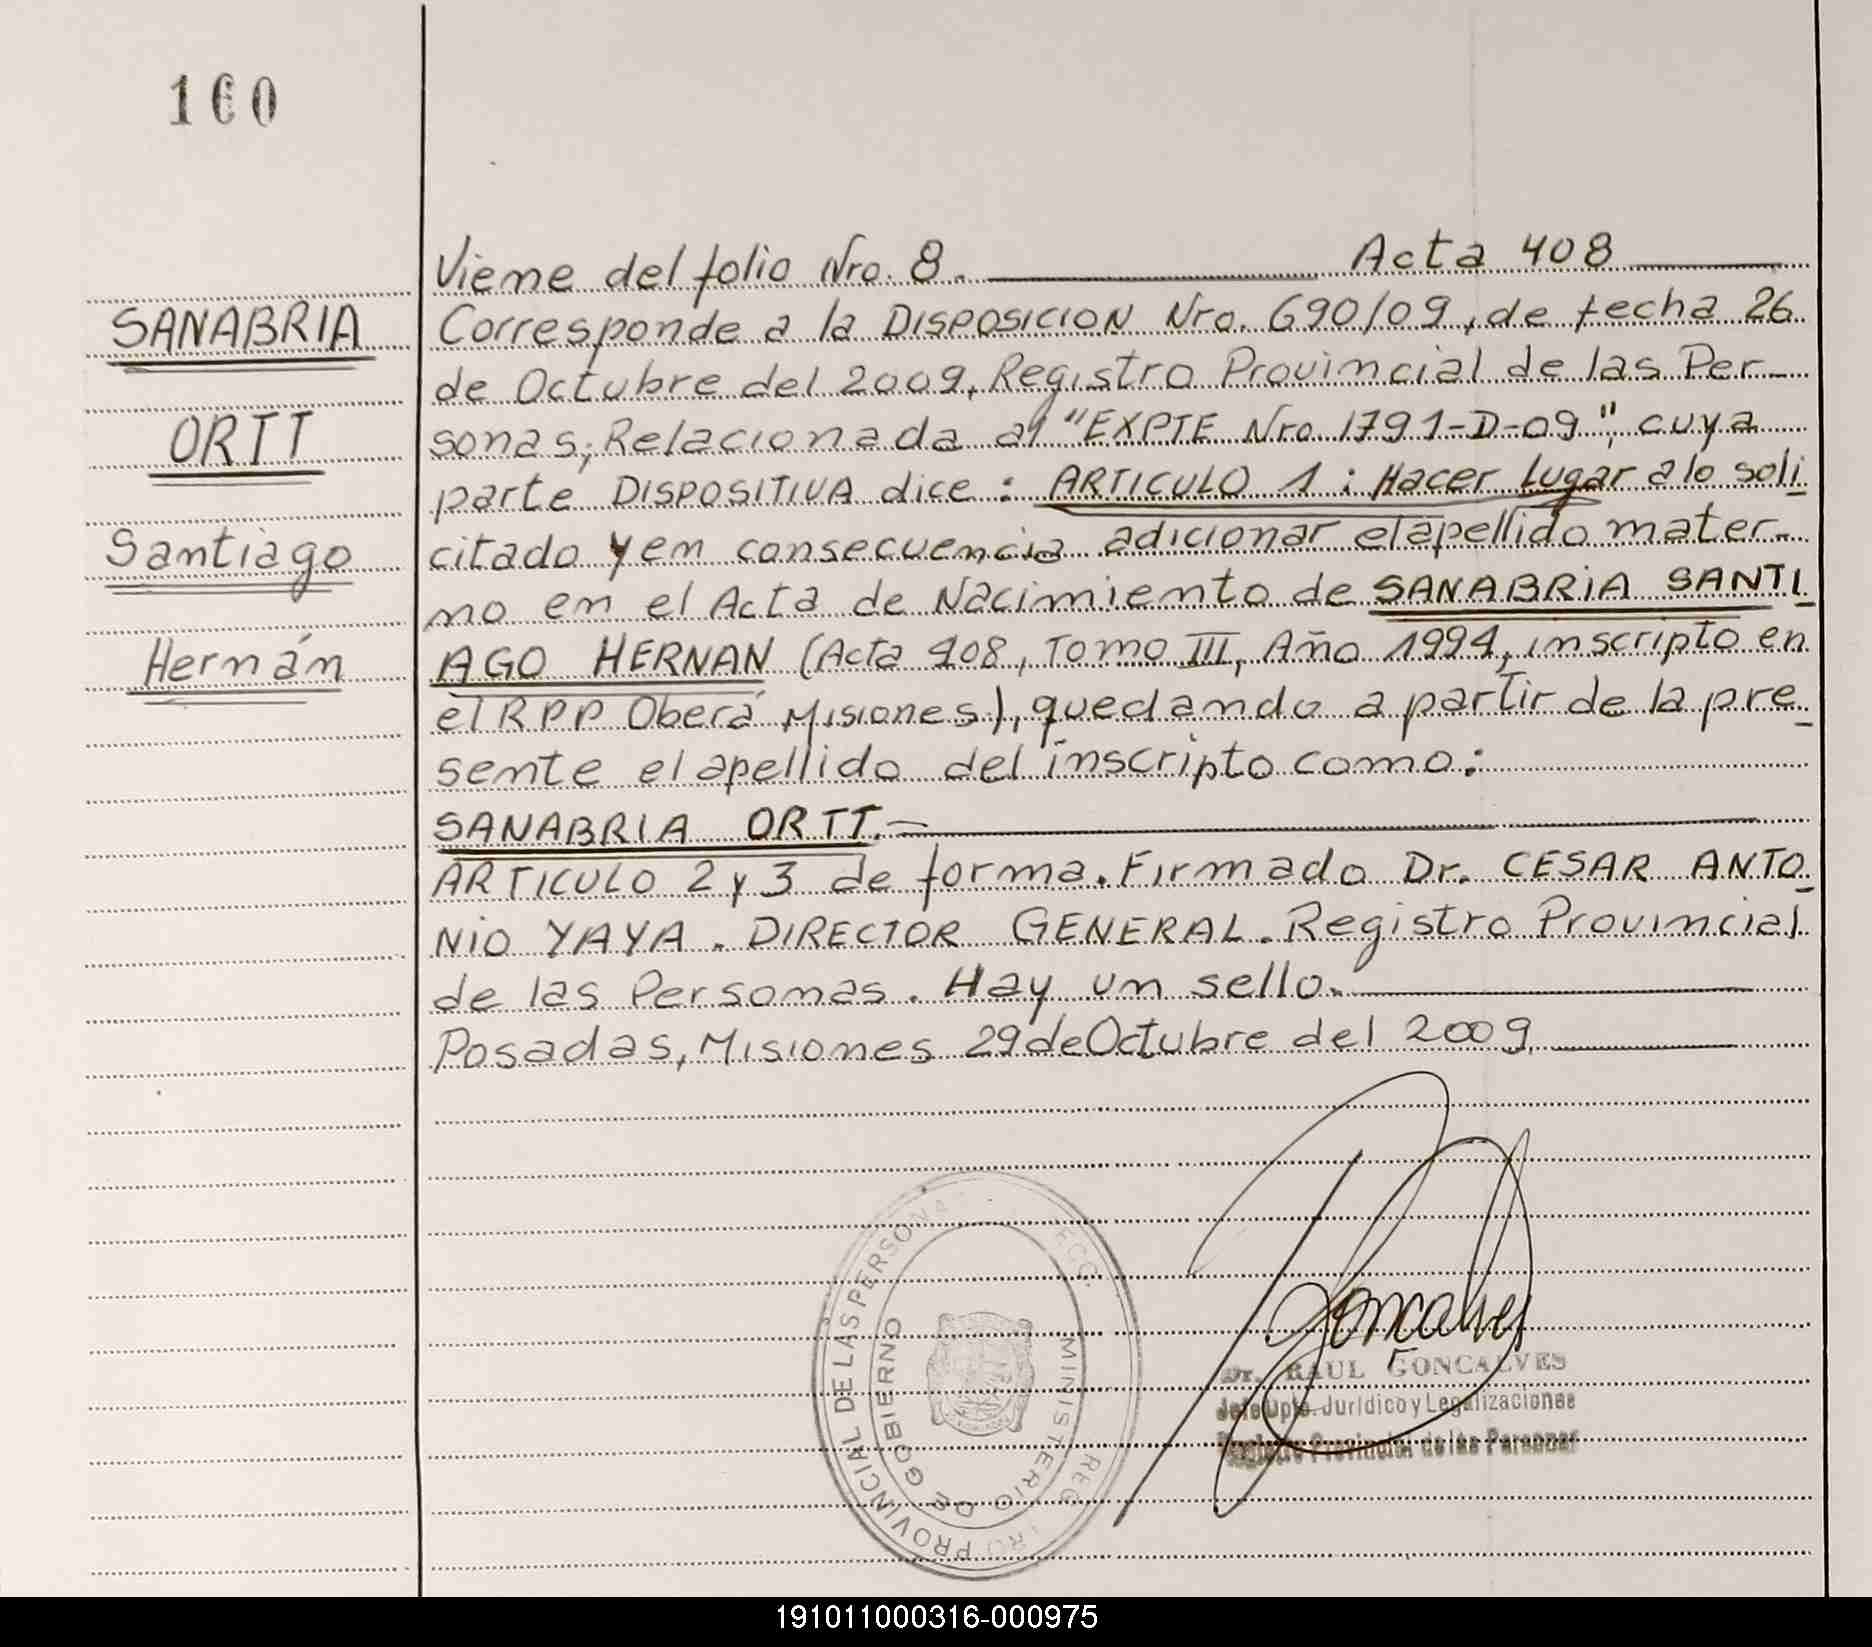 160
Viene del folio Nro. 8. Acta 408
SANABRIA
ORTT
Santiago
Hernán
Corresponde a la DISPOSICION Nro. 690/09, de fecha 26
de Octubre del 2009, Registro Provincial de las Per-
sonas, Relacionada al "EXPTE Nro 1791-D-09", cuya
parte DISPOSITIVA dice: ARTICULO 1: Hacer Lugar a lo soli
citado y en consecuencia adicionar el apellido mater-
no en el Acta de Nacimiento de SANABRIA SANTI
AGO HERNAN (Acta 408, Tomo III, Año 1994, inscripto en
el RPP Oberá Misiones), quedando a partir de la pre
sente el apellido del inscripto como:
SANABRIA ORTT.-
ARTICULO 2 y 3 de forma. Firmado Dr. CESAR ANTO
NIO YAYA. DIRECTOR GENERAL. Registro Provincial
de las Personas. Hay un sello.
Posadas, Misiones 29 de Octubre del 2009
PROVINCIAL DE LAS PERSONA
MINISTERIO DE GOBIERNO
Goncalves
Dr. RAUL GONCALVES
Jefe Dpto. Jurídico y Legalizaciones
Registro Provincial de las Personas
191011000316-000975